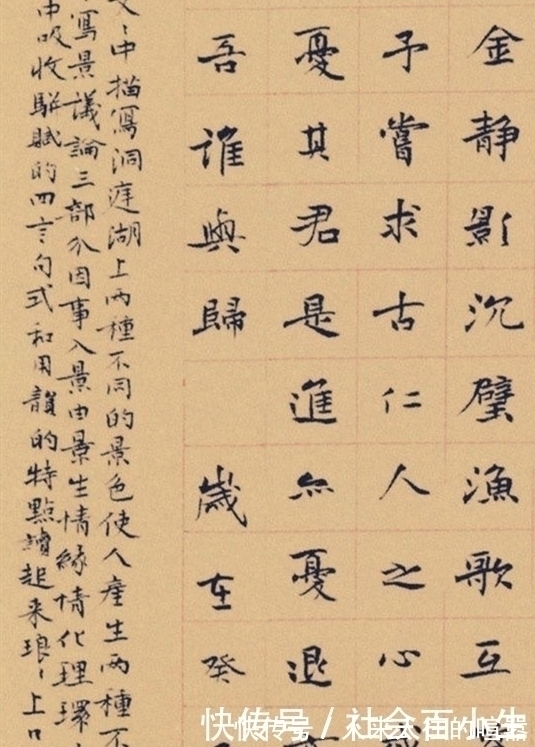 金靜影沉璧漁歌互
予嘗求古仁人之心
憂其君是進亦憂退
吾誰與歸 歲在癸
中描寫洞庭湖上兩種不同的景色使人產生兩種不
寫景議論三部分因事入景由景生情緣情化理環
中吸收駢賦的四言句式和用韻的特點讀起来琅々上口
快传号 / 社会百小生